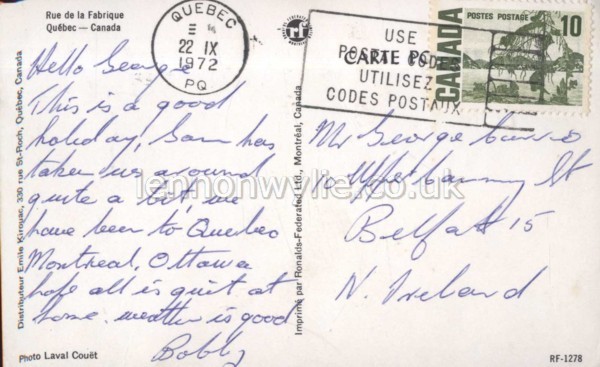 Rue de la Fabrique
Québec — Canada
QUEBEC
22 IX
1972
PQ
USE
POSTAL CODES
UTILISEZ
CODES POSTAUX
CARTE
POSTES POSTAGE
10
CANADA
Hello George
This is a good
holiday, Sam has
taken us around
quite a bit, we
have been to Quebec
Montreal, Ottawa
hope all is quit at
home. weather is good
Bobby
Mr George
10 St
Belfast 15
N. Ireland
Distributeur Emile Kirouac, 330 rue St-Roch, Québec, Canada
Imprimé par Ronalds-Federated Ltd., Montréal, Canada
lennonwylie.co.uk
Photo Laval Couët
RF-1278